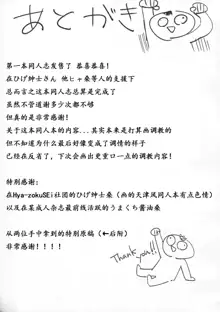 あとがき
第一本同人志发售了 恭喜恭喜！
在ひげ紳士さん 他ヒャ桑等人的支援下
总而言之这本同人志总算是完成了
虽然不管道谢多少次都不够
但真的是非常感谢！
关于这本同人本的内容…… 其实本来是打算画调教的
但是为什么本篇最后好像变成了调情的样子
已经在反省了，下次会画出更重口一点的调教内容！
特别感谢：
在Hya-zokuSEi社团的ひげ紳士桑（画的天津风同人本有点色情）
以及在某成人杂志最前线活跃的うまくち醤油桑
从两位手中拿到的特别原稿（←后附）
非常感谢！！！！
Thank you!!